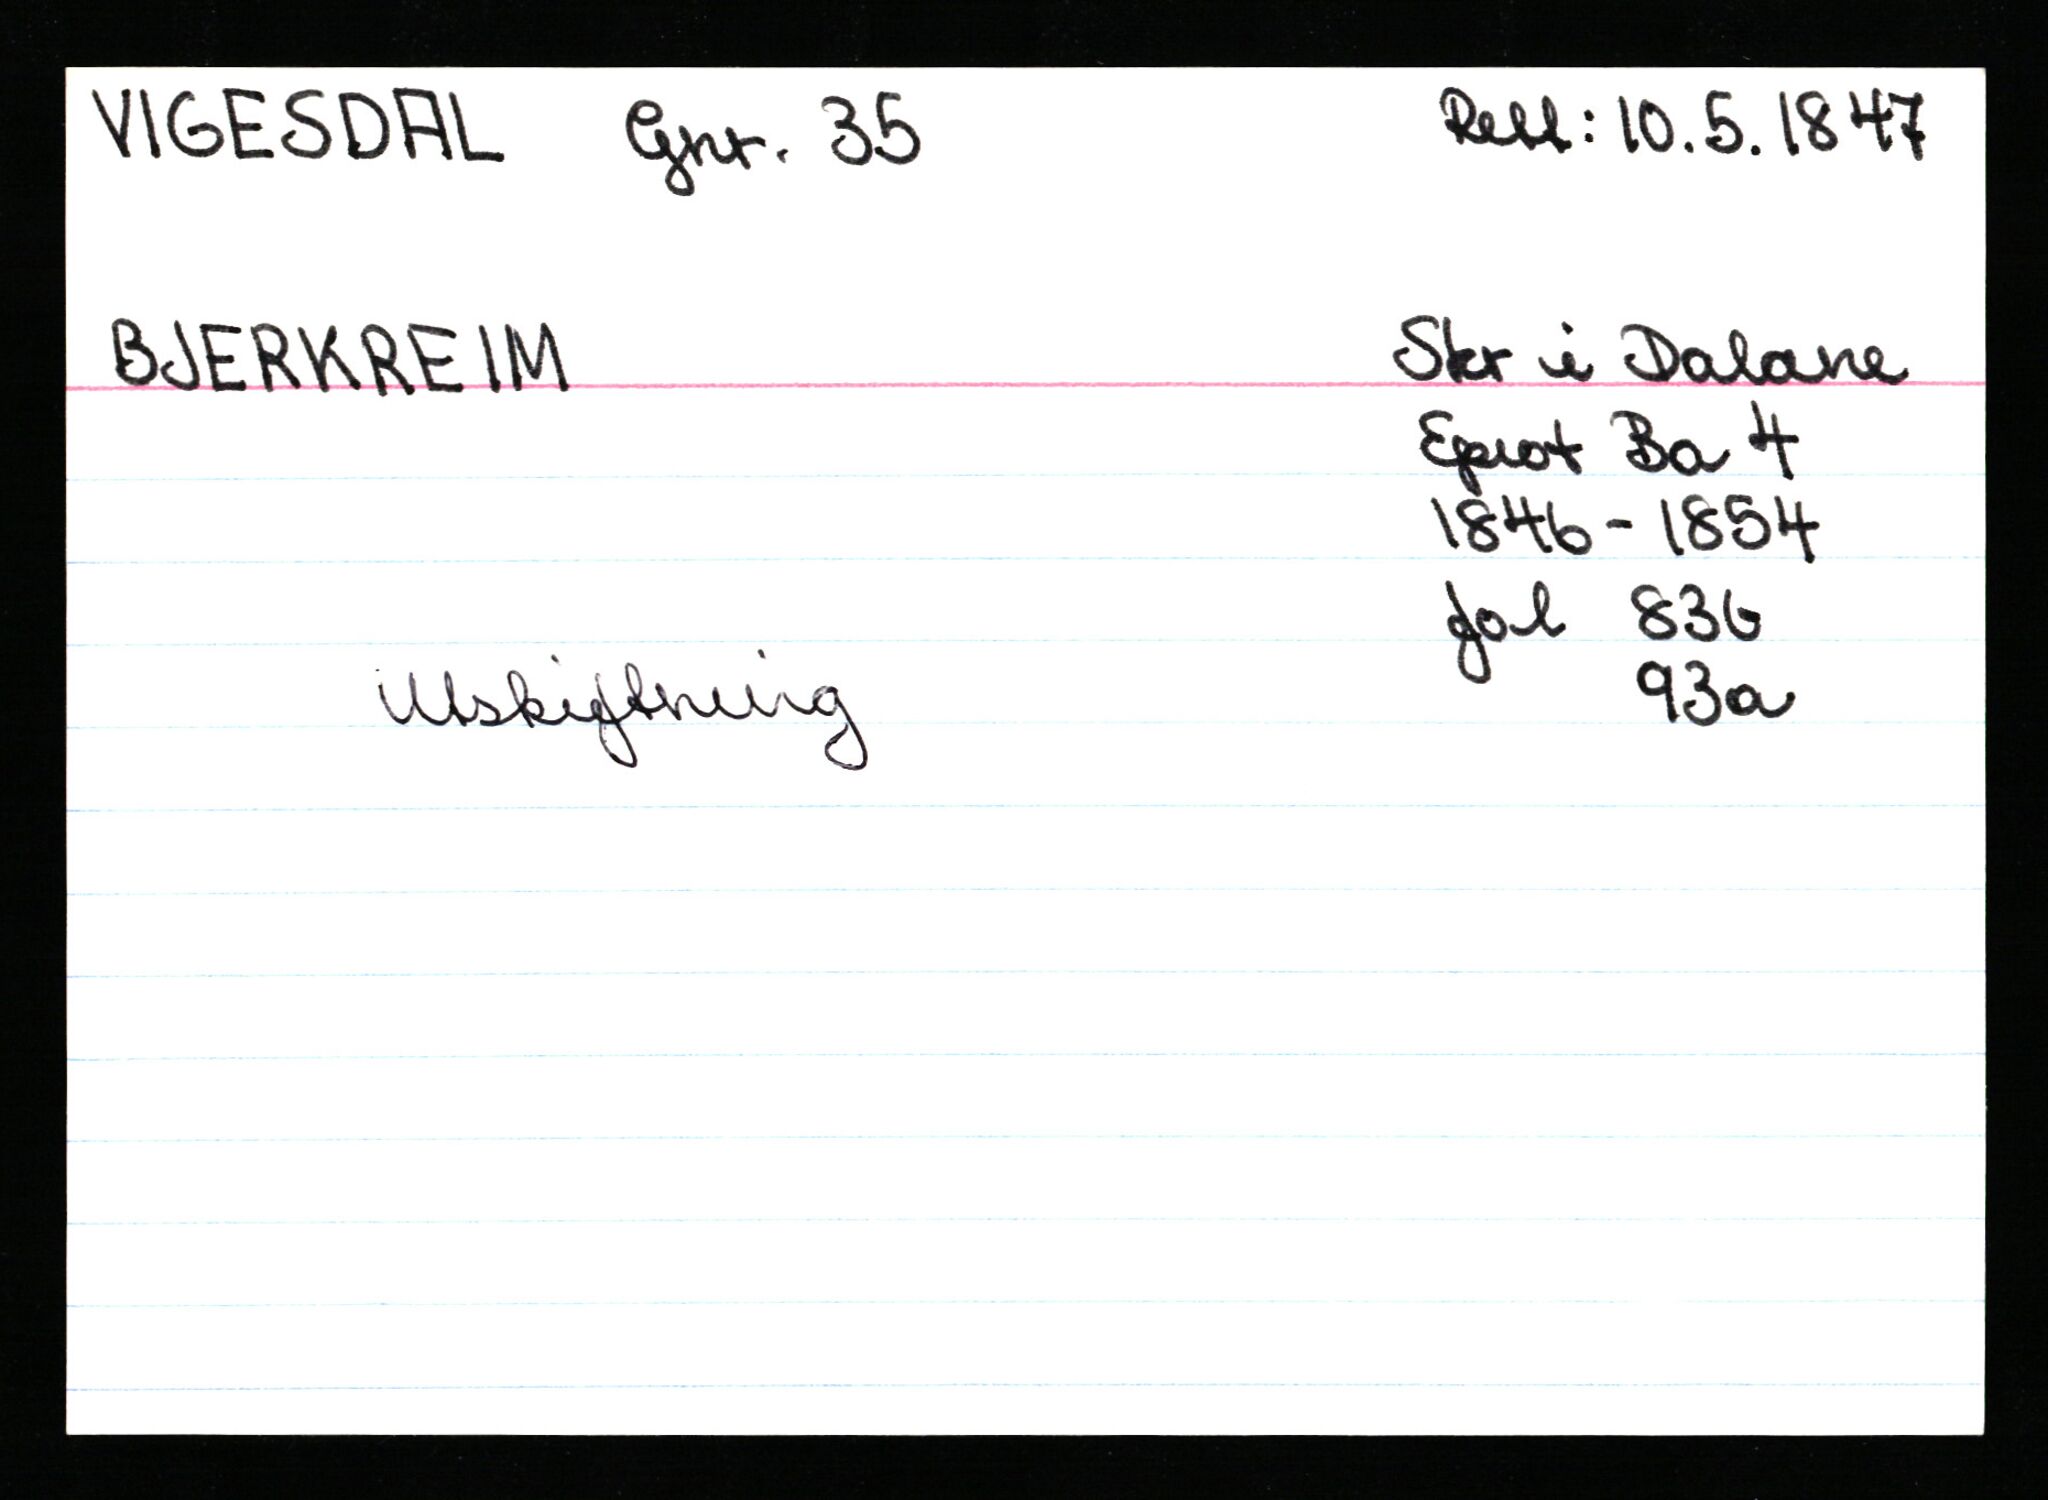 VIGESDAL Gnr. 35 Rett: 10.5.1847
BJERKREIM Skr i Dalane
Eprot Ba 4
1846-1854
fol 83b
93a
Utskiftning